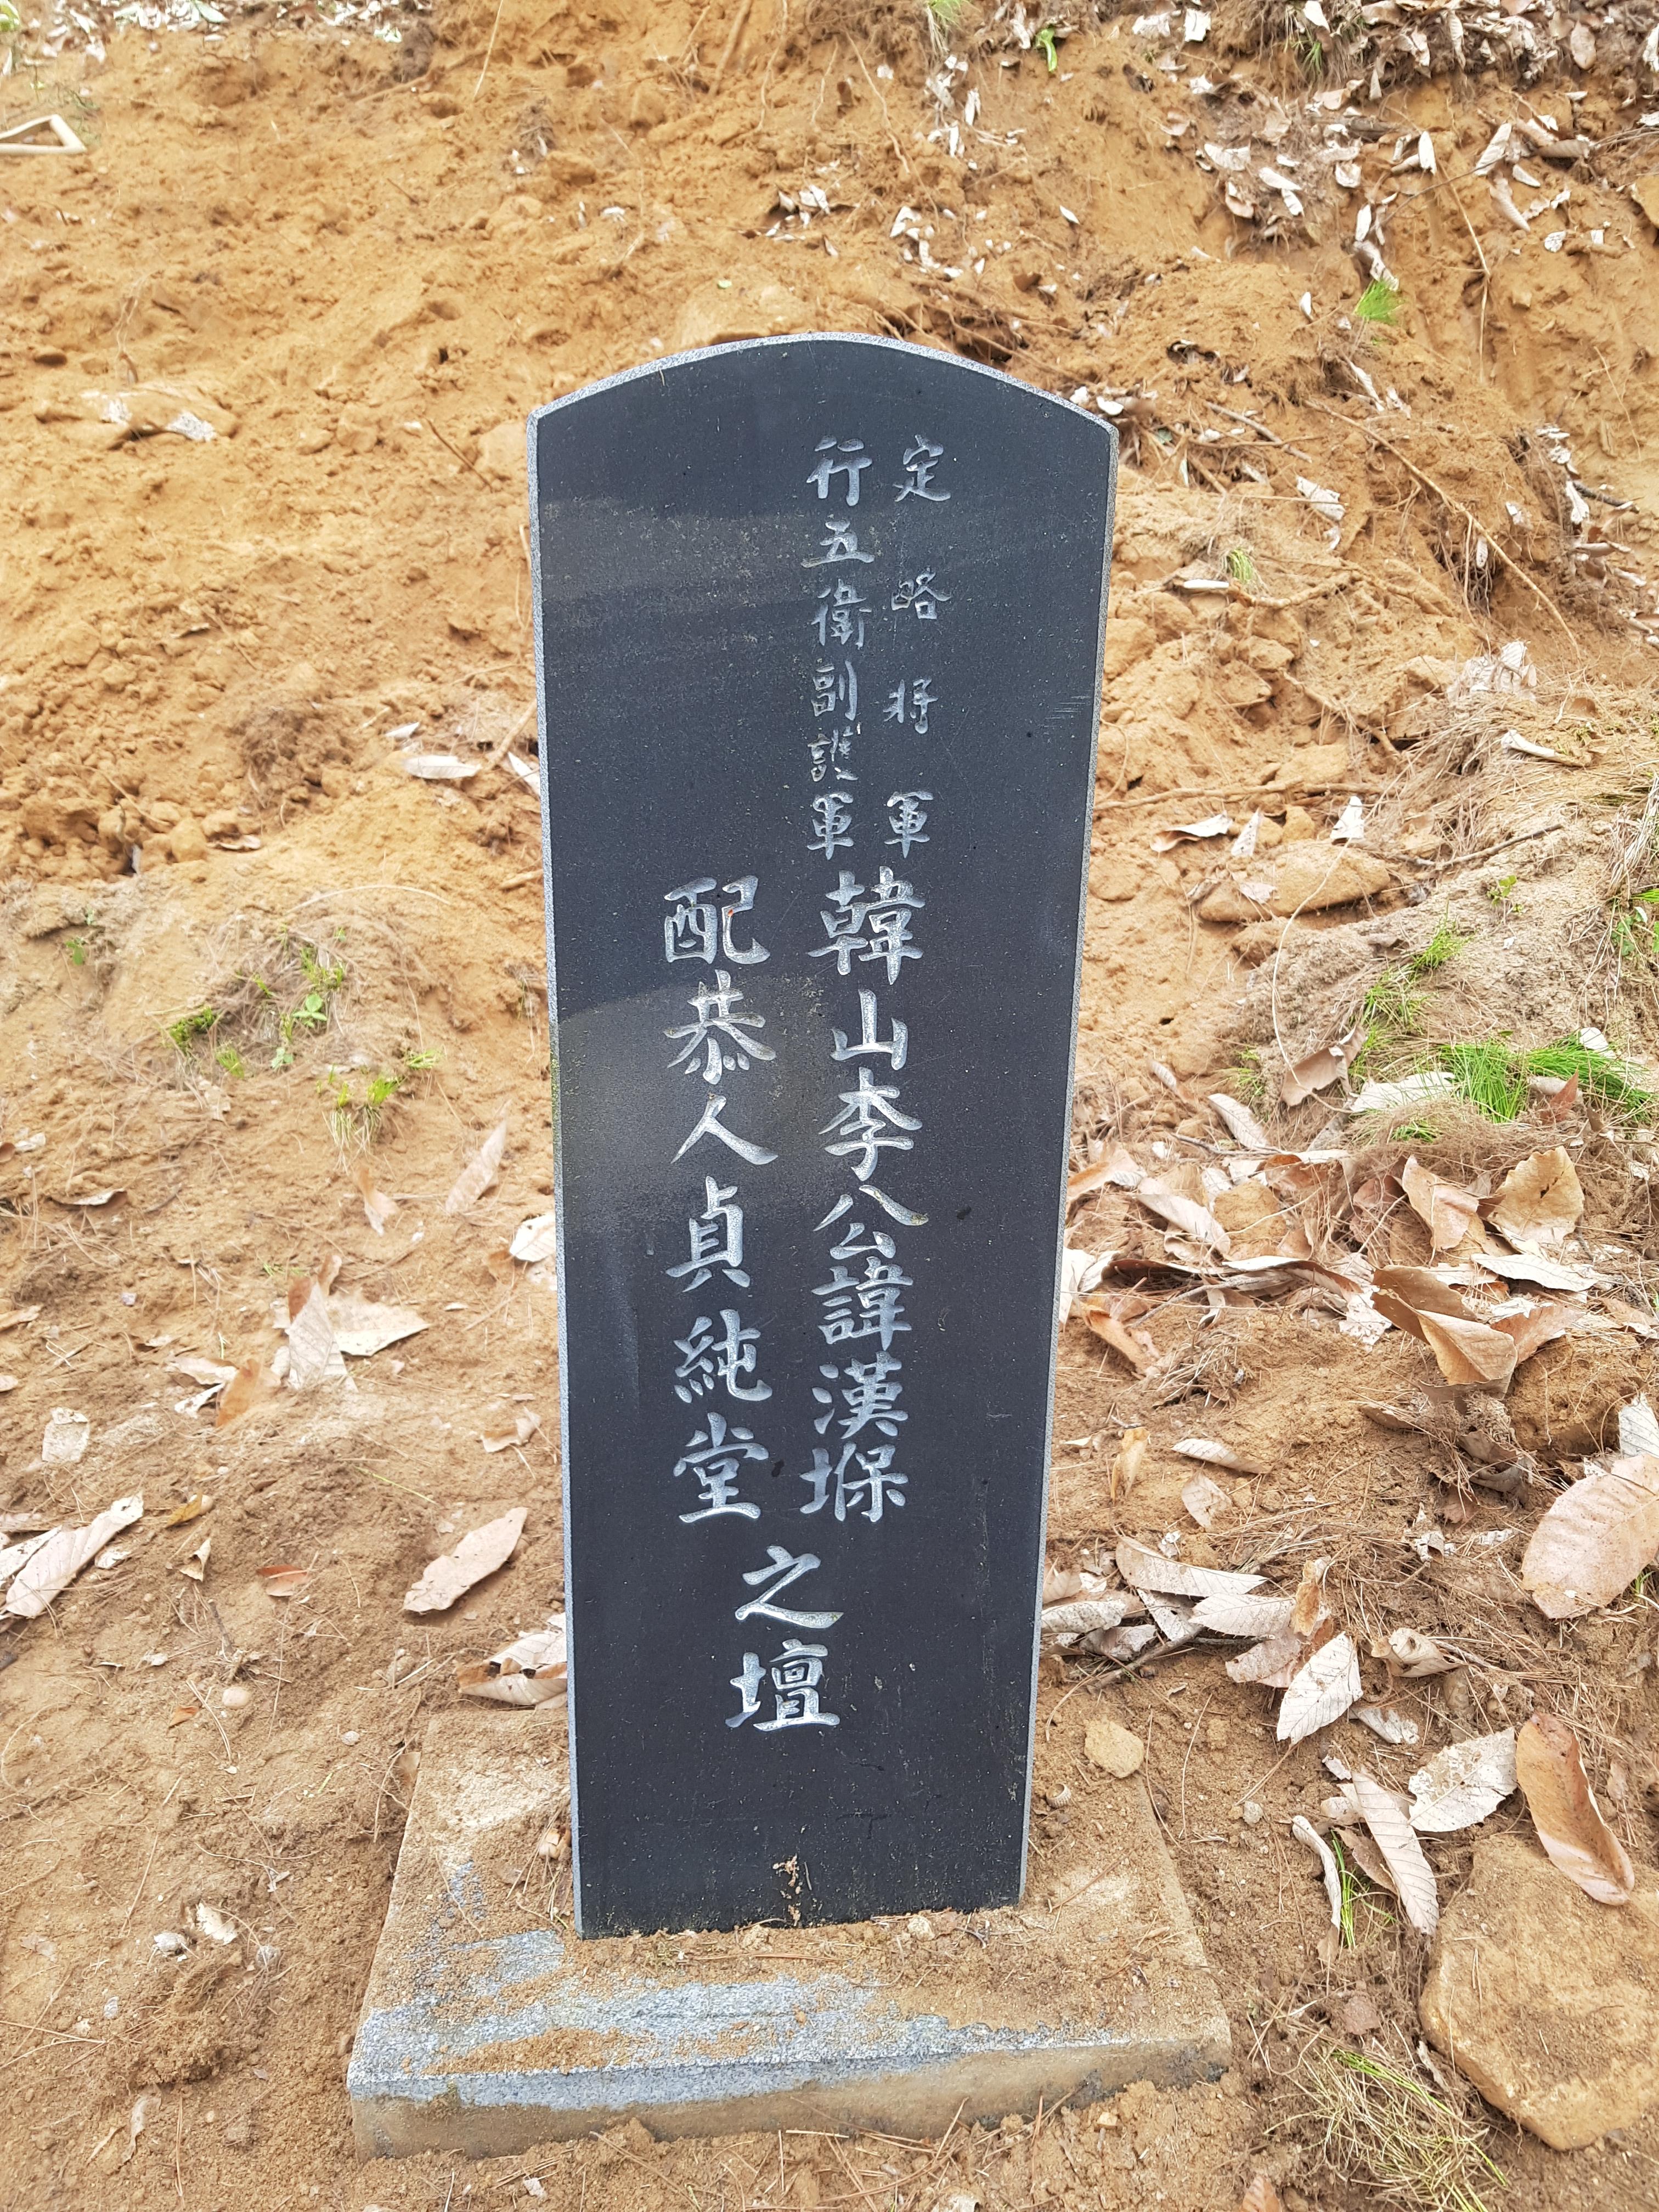 定略将軍
行五衛副護軍
韓山李公諱漢堢
配恭人貞純堂
之壇